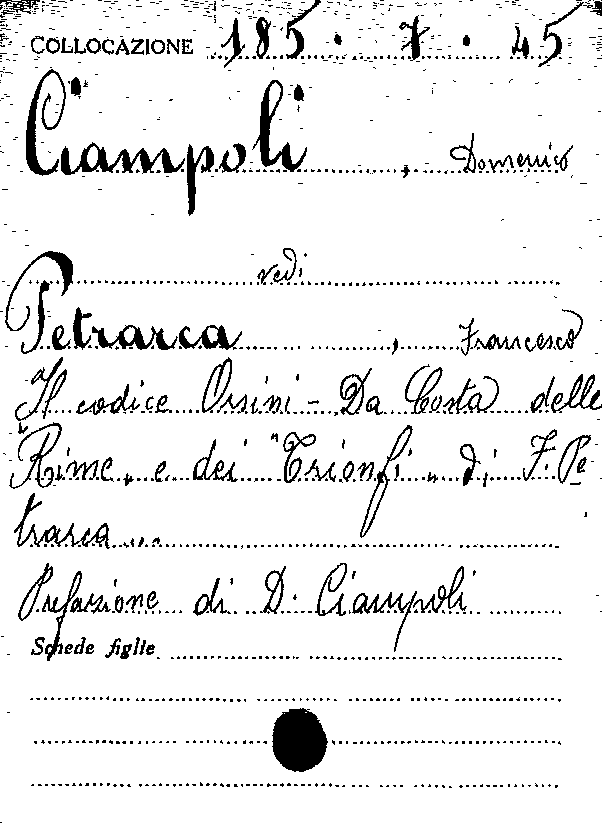 COLLOCAZIONE 185. 7. 45
Ciampoli, Domenico
vedi
Petrarca, Francesco
Il codice Orsini - Da Costa delle
"Rime" e dei "Trionfi" di F. Pe
trarca...
Prefazione di D. Ciampoli
Schede figlie